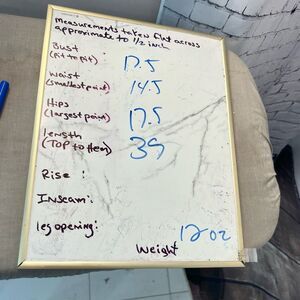 Measurements taken flat across
approximate to 1/2 inch
Bust
(pit to pit) 17.5
Waist
(smallest point) 14.5
Hips
(largest point) 17.5
Length
(Top to Hem) 39
Rise :
Inseam:
leg opening:
12 oz
Weight